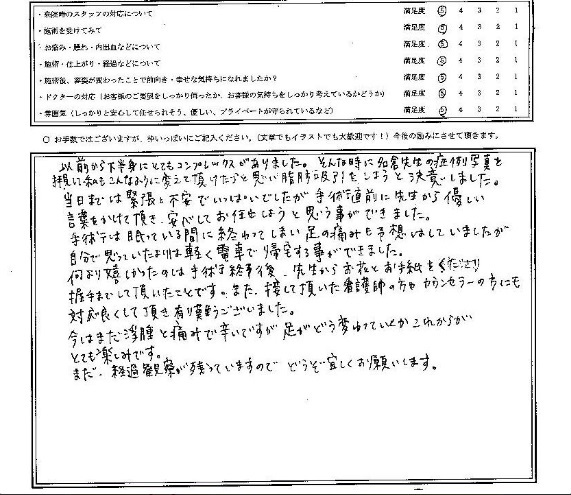 ・来院時のスタッフの対応について 満足度 ⑤ 4 3 2 1
・施術を受けてみて 満足度 ⑤ 4 3 2 1
・お痛み・腫れ・内出血などについて 満足度 ⑤ 4 3 2 1
・施術・仕上がり・経過などについて 満足度 ⑤ 4 3 2 1
・施術後、容姿が変わったことで前向き・幸せな気持ちになれましたか？ 満足度 ⑤ 4 3 2 1
・ドクターの対応（お客様のご要望をしっかり伺ったか、お客様の気持ちをしっかり考えているかどうか） 満足度 ⑤ 4 3 2 1
・雰囲気（しっかりと安心して任せられそう、優しい、プライベートが守られているなど） 満足度 ⑤ 4 3 2 1
○ お手数ではございますが、枠いっぱいにご記入ください。（文章でもイラストでも大歓迎です！）今後の励みにさせて頂きます。
以前から下半身にとてもコンプレックスがありました。そんな時に名倉先生の症例写真を
拝見して私もこんなふうに変えて頂けたらと思い脂肪吸引をしようと決意しました。
当日までは緊張と不安でいっぱいでしたが手術直前に先生から優しい
言葉をかけて頂き、安心してお任せしようと思う事ができました。
手術は眠っている間に終わってしまい足の痛みも予想はしていましたが
自分で思っていたよりは軽く電車で帰宅する事ができました。
何より嬉しかったのは手術終了後、先生からお花とお手紙をくださり
握手までして頂いたことです。また、接して頂いた看護師の方もカウンセラーの方にも
対応良くして頂き有り難うございました。
今はまだ浮腫と痛みで辛いですが足がどう変わっていくかこれからが
とても楽しみです。
まだ、経過観察が残っていますので どうぞ宜しくお願いします。